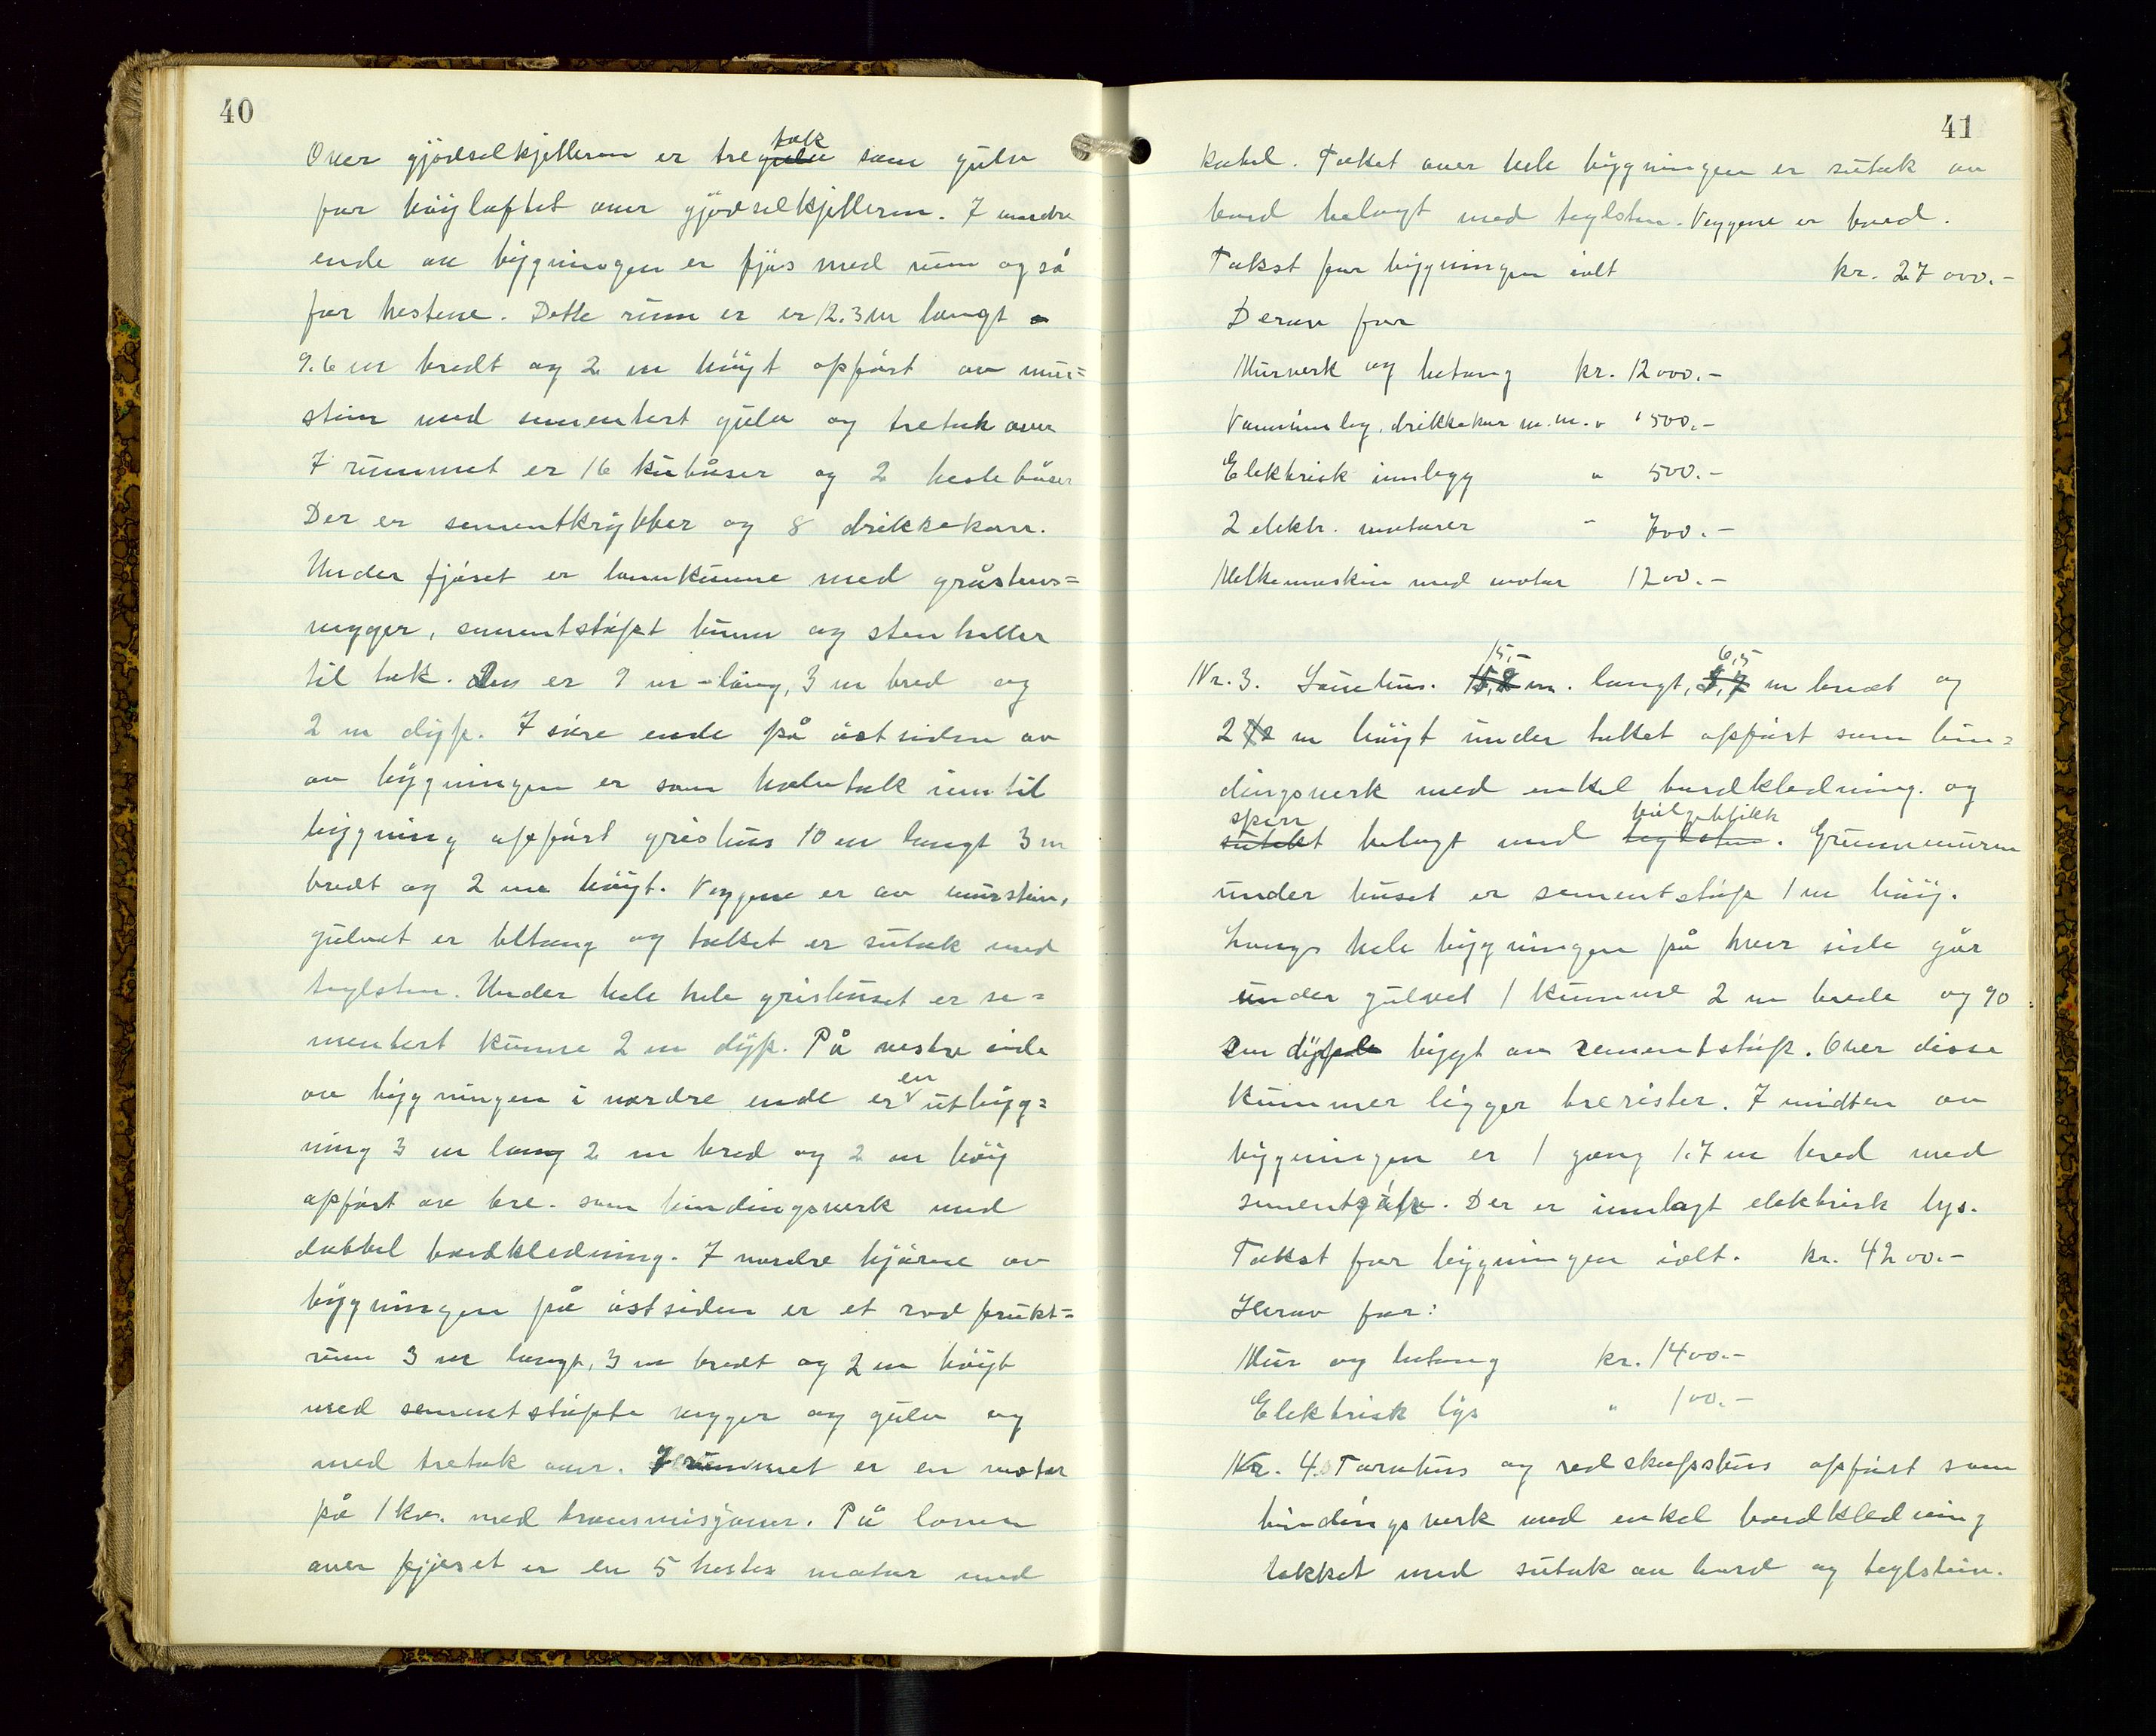 40
Over gjödselkjelleren er tregulv tak som gulv
for höyloftet over gjödselkjelleren. I nordre
ende av bygningen er fjös med rum også
for hestene. Dette rum er er 12.3 m langt
9.6 m bredt og 2 m höyt opfört av mur=
stein med sementert gulv og tretak over
I rummet er 16 kubåser og 2 hestebåser
Der er sementkrybber og 8 drikkekarr.
Under fjöset er lannkumme med gråstens=
vegger, sementstöpt bunn og stenheller
til tak. Den er 9 m lang, 3 m bred og
2 m dyp. I söre ende på östsiden av
av bygningen er som halvtak inntil
bygning opfört grishus 10 m langt 3 m
bredt og 2 m höyt. Veggene er av murstein,
gulvet er betong og taket er sutak med
teglsten. Under hele hele grishuset er se=
mentert kumme 2 m dyp. På vestre side
av bygningen i nordre ende er en utbyg=
ning 3 m lang 2 m bred og 2 m höy
opfört av tre. som bindingsverk med
dobbel bordkledning. I nordre hjörne av
bygningen på östsiden er et rod frukt=
rum 3 m langt, 3 m bredt og 2 m höyt
med sementstöpte vegger og gulv og
med tretak over. I rummet er en motor
på 1 kv. med transmisjoner. På loven
over fjöset er en 5 hestes motor med
41
kabel. Taket over hele bygningen er sutak av
bord belagt med teglsten. Veggene er bord.
Takst for bygningen ialt kr. 27000.-
Derav for
Murverk og betong kr. 12000.-
Vanninnleg, drikkekar m.m. " 1500.-
Elektrisk innlegg " 500.-
2 elektr. motorer " 700.-
Melkemaskin med motor 1200.-
Nr. 3. Sauehus. 15,2 15,- m. langt, 8,7 6,5 m bredt og
2 m höyt under taket opfört som bin=
dingsverk med enkel bordkledning. og
sutekt sperr belagt med teglsten bölgeblikk. Grunnmuren
under huset er sementstöp 1 m höy.
Langs hele bygningen på hver side går
under gulvet 1 kumme 2 m brede og 90
cm dype bygt av sementstöp. Over disse
kummer ligger trerister. I midten av
bygningen er 1 gang 1.7 m bred med
sementstöp. Der er innlagt elektrisk lys.
Takst for bygningen ialt. kr. 4200.-
Herav for:
Mur og betong kr. 1400.-
Elektrisk lys " 100.-
Nr. 4. Torvhus og redskapshus opfört som
bindingsverk med enkel bordkledning
tekket med sutak av bord og teglstein.